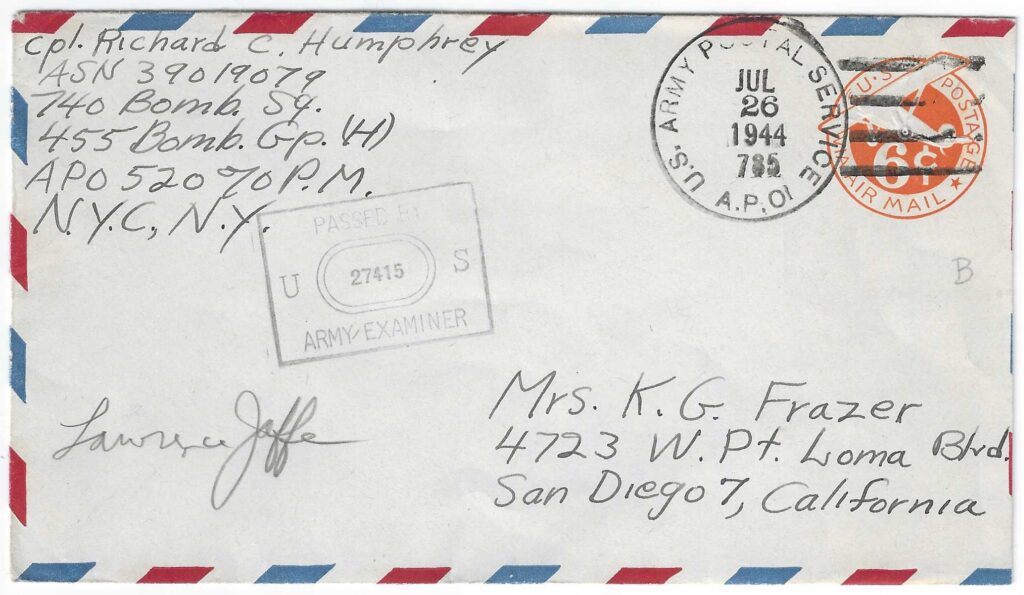 cpl. Richard C. Humphrey
ASN 39019079
740 Bomb. Sq.
455 Bomb. Gp. (H)
APO 520 % P.M.
N.Y.C., N.Y.
U.S. ARMY POSTAL SERVICE
JUL
26
1944
785
A.P.O.
U.S. POSTAGE
6¢
VIA AIR MAIL
PASSED BY
U 27415 S
ARMY EXAMINER
B
Lawrence Jaffe
Mrs. K. G. Frazer
4723 W. Pt. Loma Blvd.
San Diego 7, California